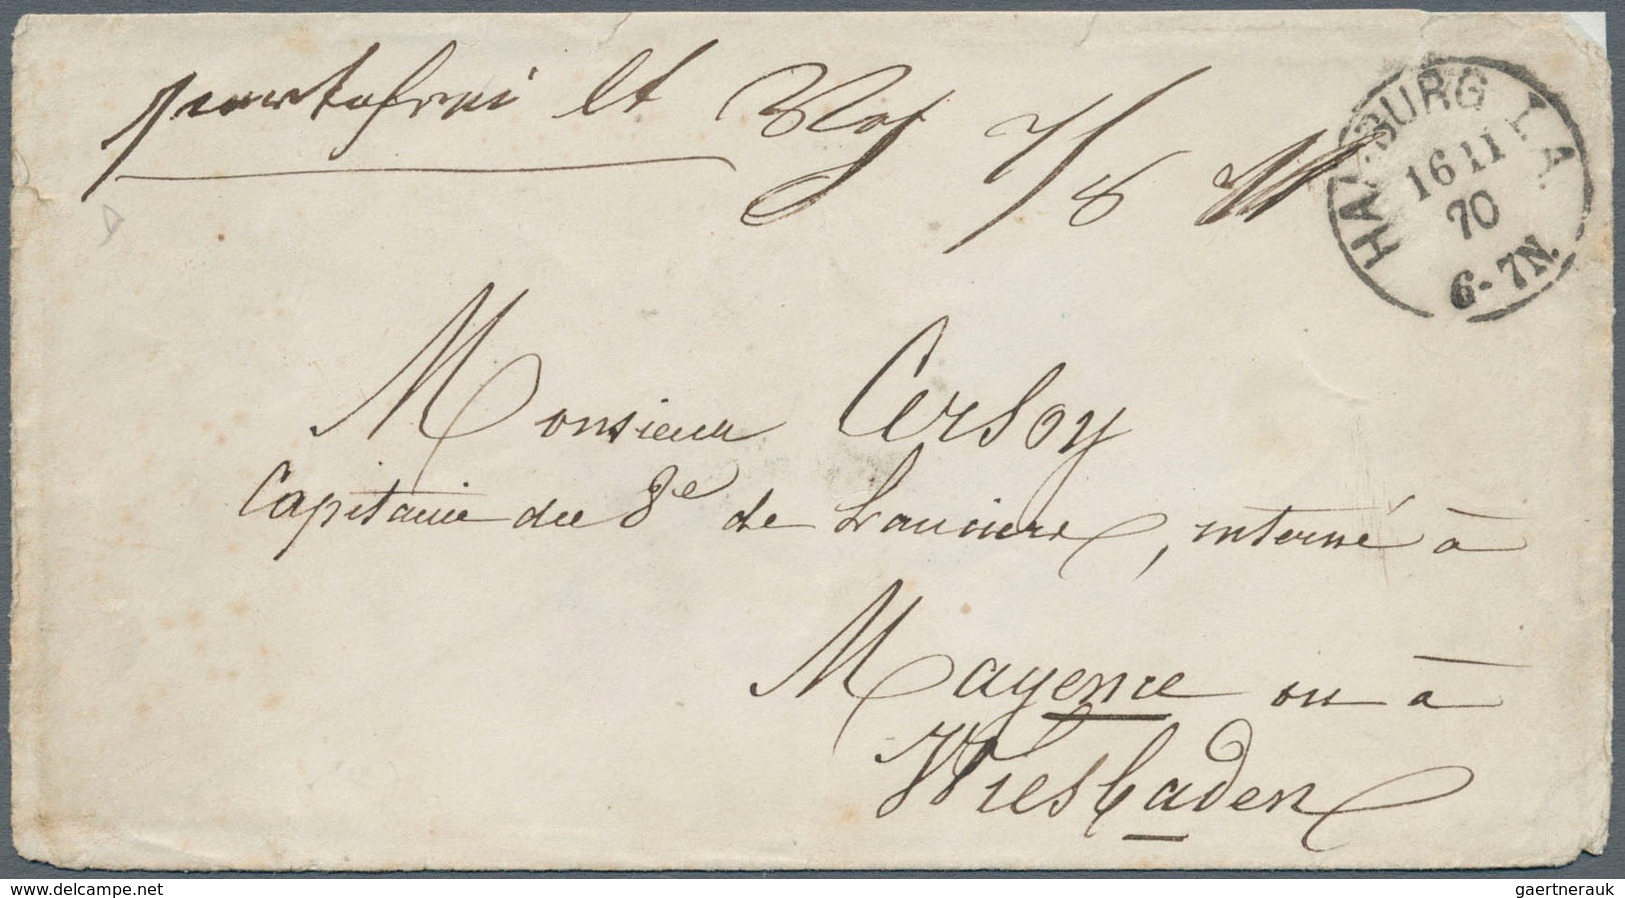 portofrei lt Rof 7/8 M
HAMBURG I.A.
16 11
70
6-7N.
Monsieur Cersoy
Capitaine du 8e de Lanciers, interné à
Mayence ou à
Wiesbaden
www.delcampe.net
gaertnerauk